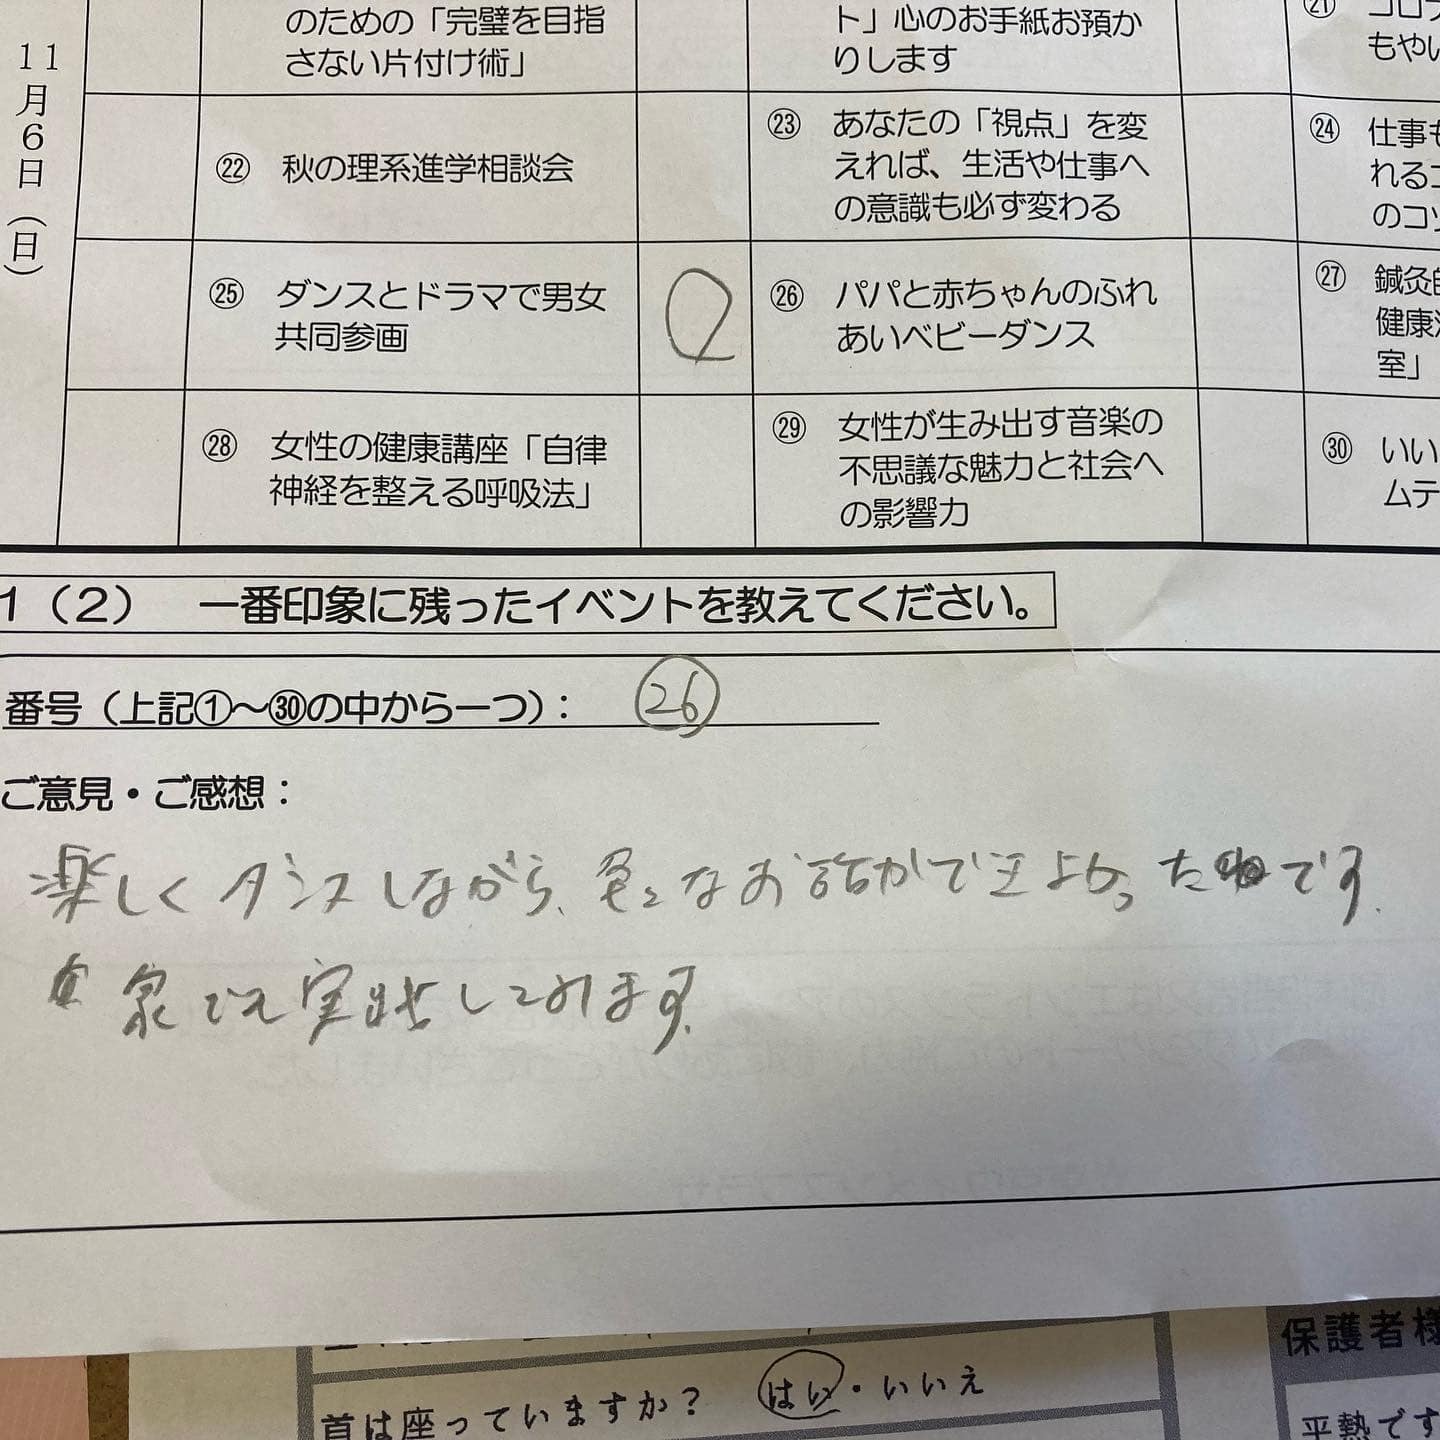 11月6日（日）
のための「完璧を目指
さない片付け術」
ト」心のお手紙お預か
りします
㉑ コロナ
もやい
㉒ 秋の理系進学相談会
㉓ あなたの「視点」を変
えれば、生活や仕事へ
の意識も必ず変わる
㉔ 仕事も
れるコ
のコツ
㉕ ダンスとドラマで男女
共同参画
㉖ パパと赤ちゃんのふれ
あいベビーダンス
㉗ 鍼灸師
健康法
室」
㉘ 女性の健康講座「自律
神経を整える呼吸法」
㉙ 女性が生み出す音楽の
不思議な魅力と社会へ
の影響力
㉚ いい
ムテ
1（2） 一番印象に残ったイベントを教えてください。
番号（上記①～㉚の中から一つ）： ㉖
ご意見・ご感想：
楽しくダンスしながら、色々なお話ができよかったです。
家でも実践してみます。
首は座っていますか？ はい・いいえ
保護者様
平熱です